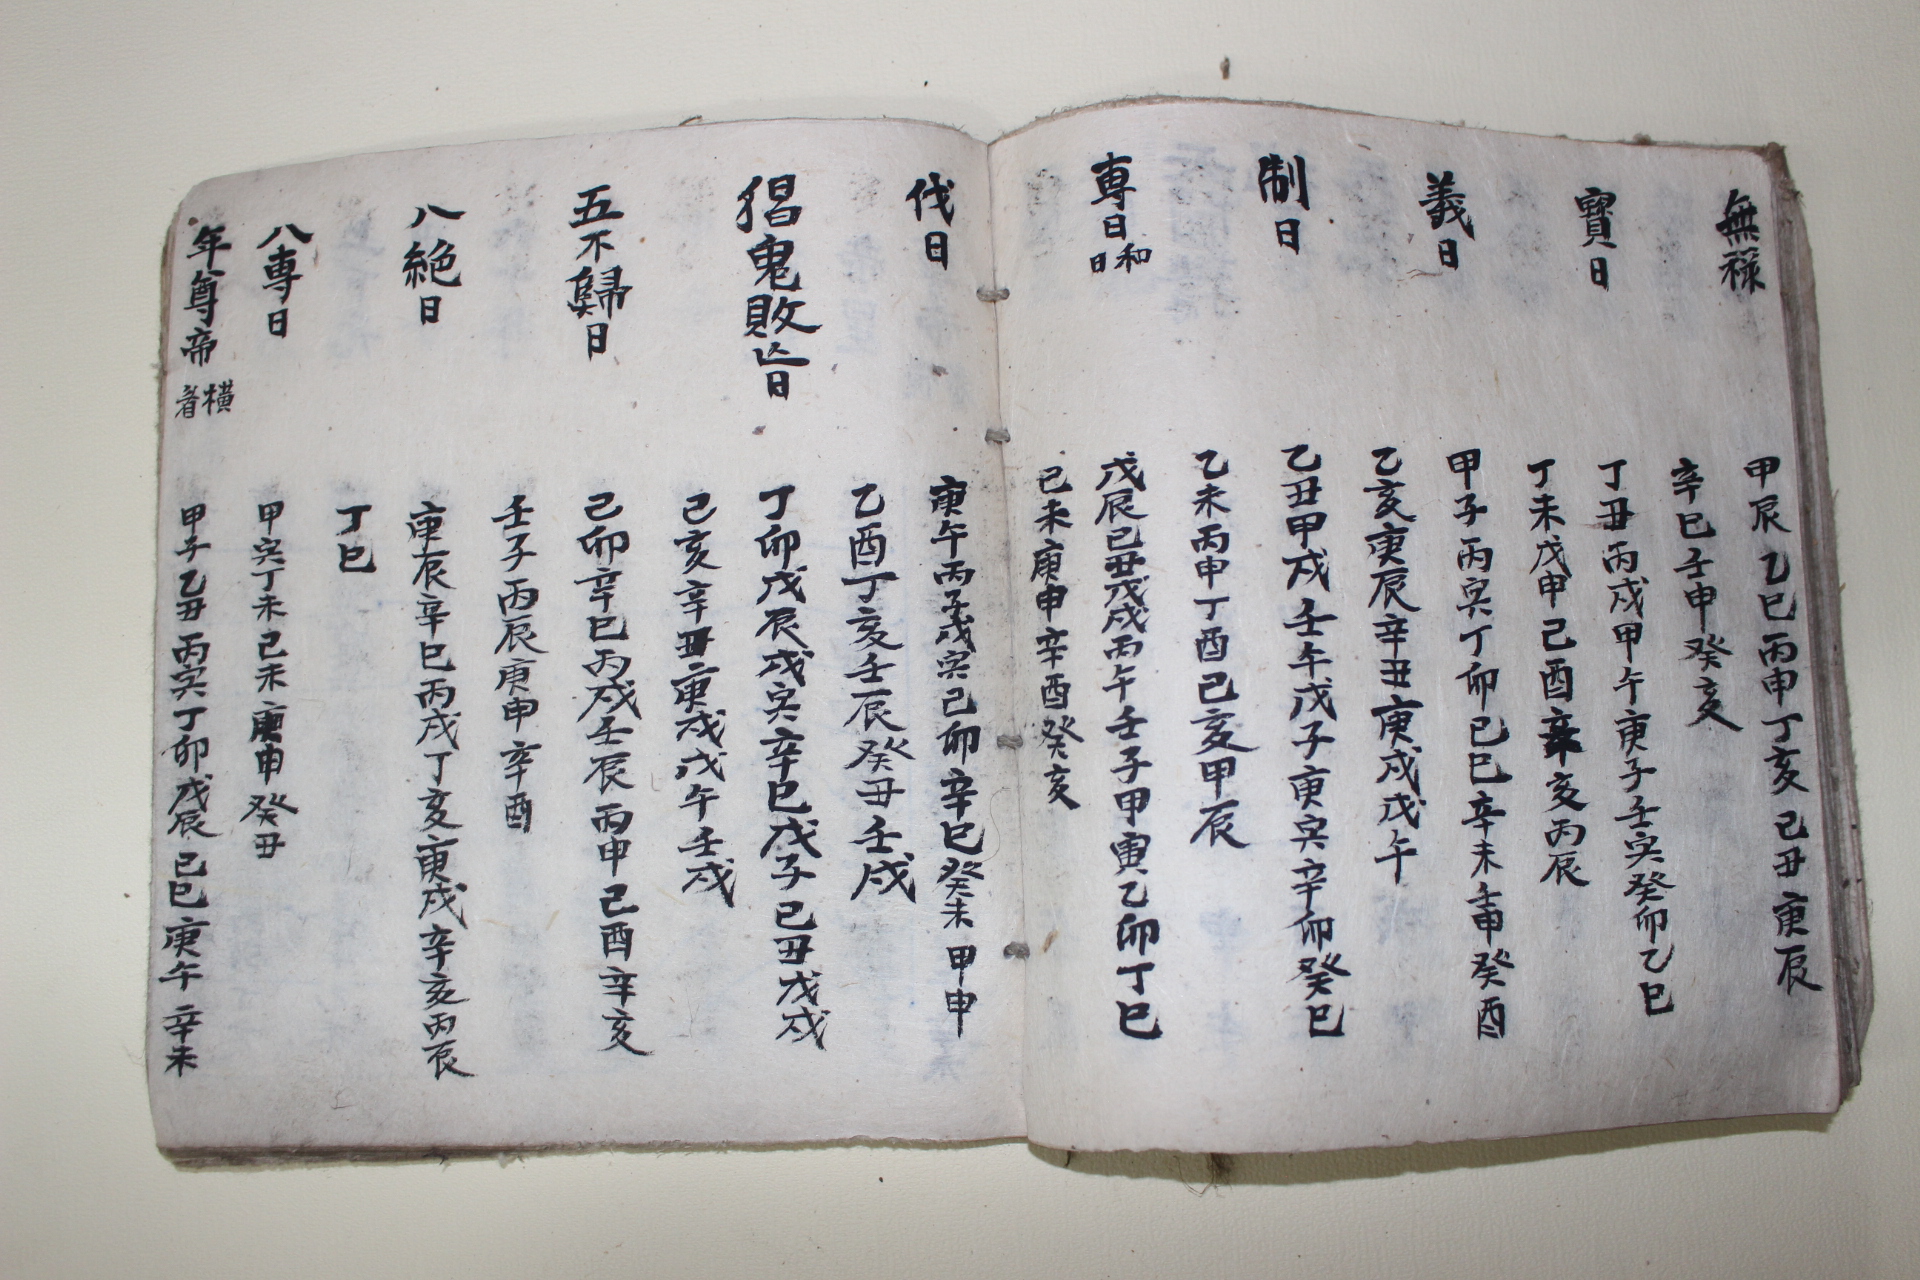 無祿
甲辰乙巳丙申丁亥己丑庚辰
辛巳壬申癸亥
寶日
丁丑丙戌甲午庚子壬寅癸卯乙巳
丁未戊申己酉辛亥丙辰
義日
甲子丙寅丁卯己巳辛未壬申癸酉
乙亥庚辰辛丑庚戌戊午
制日
乙丑甲戌壬午戊子庚寅辛卯癸巳
乙未丙申丁酉己亥甲辰
專日 和日
戊辰己丑戊戌丙午壬子甲寅乙卯丁巳
己未庚申辛酉癸亥
伐日
庚午丙子戊寅己卯辛巳癸未甲申
乙酉丁亥壬辰癸丑壬戌
猖鬼敗亡日
丁卯戊辰戊寅辛巳戊子己丑戊戌
己亥辛丑庚戌戊午壬戌
五不歸日
己卯辛巳丙戌壬辰丙申己酉辛亥
壬子丙辰庚申辛酉
八絶日
庚辰辛巳丙戌丁亥庚戌辛亥丙辰
丁巳
八専日
甲寅丁未己未庚申癸丑
年尊帝 橫看
甲子乙丑丙寅丁卯戊辰己巳庚午辛未